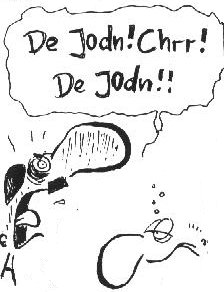 De Jodn! Chrr!
De Jodn!!